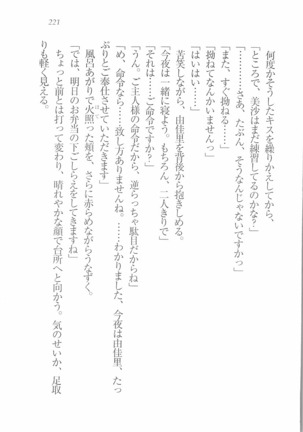 221
何度かそうしたキスを繰りかえしてから、
「ところで、美沙はまだ練習してるのかな?」
「………さあ、たぶん、そうなんじゃないですかっ」
「また、すぐ拗ねる……」
「拗ねてなんかいませんっ」
「はいはい……」
苦笑しながら、由佳里を背後から抱きしめる。
「今夜は一緒に寝よう。もちろん、二人きりで」
「それは……ご命令ですか?」
「うん。ご主人様の命令だから、逆らっちゃ駄目だからね」
「め、命令なら……致し方ありませんね。……わかりました、今夜は由佳里、たっ
ぷりとご奉仕させていただきます」
風呂あがりで火照った頬を、さらに赤らめながらうなずく。
「では、明日のお弁当の下ごしらえをしてきますね」
ちょっと前とは打って変わり、晴れやかな顔で台所へと向かう。気のせいか、足取
りも軽く見える。